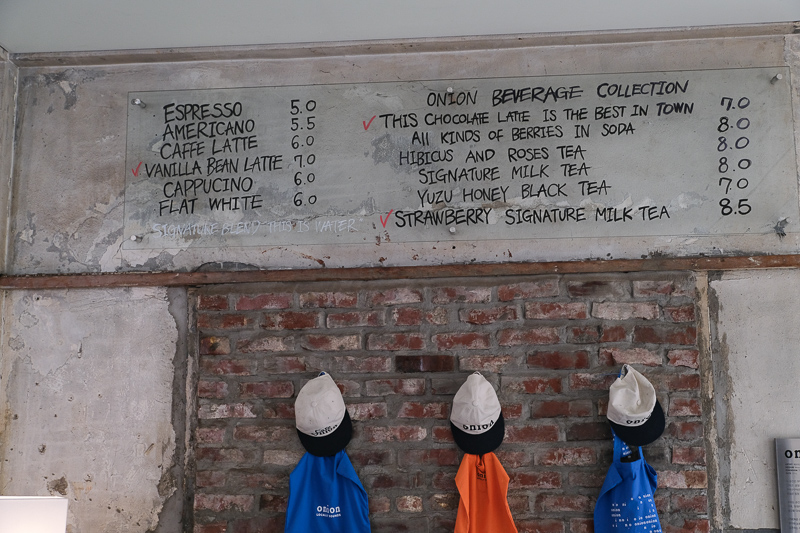 ESPRESSO 5.0
AMERICANO 5.5
CAFFE LATTE 6.0
✓VANILLA BEAN LATTE 7.0
CAPPUCINO 6.0
FLAT WHITE 6.0
SIGNATURE BLEND-THIS IS WATER
ONION BEVERAGE COLLECTION
✓THIS CHOCOLATE LATTE IS THE BEST IN TOWN 7.0
All KINDS OF BERRIES IN SODA 8.0
HIBICUS AND ROSES TEA 8.0
SIGNATURE MILK TEA 8.0
YUZU HONEY BLACK TEA 7.0
✓STRAWBERRY SIGNATURE MILK TEA 8.5
onion
onion
onion